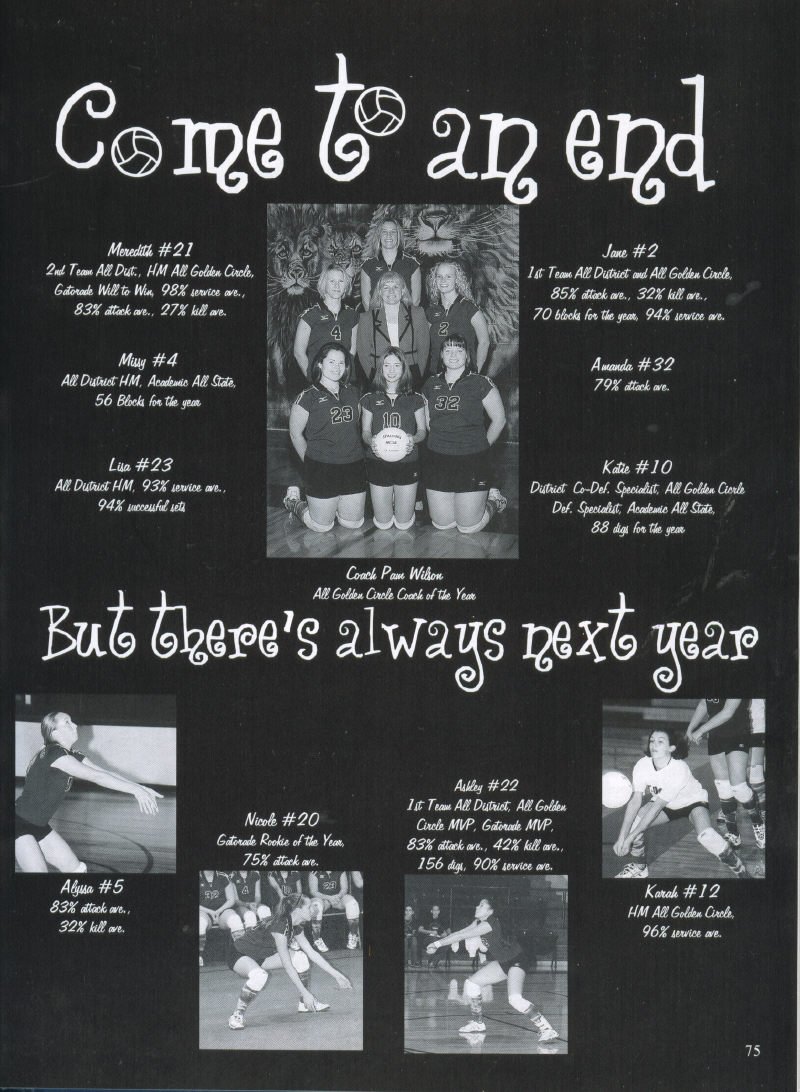 Come to an end
Meredith #21
2nd Team All Dist., HM All Golden Circle,
Gatorade Will to Win, 98% service ave.,
83% attack ave., 27% kill ave.
Missy #4
All District HM, Academic All State,
56 Blocks for the year
Lisa #23
All District HM, 93% service ave.,
94% successful sets
4
2
23
10
32
SPALDING
Jane #2
1st Team All District and All Golden Circle,
85% attack ave., 32% kill ave.,
70 blocks for the year, 94% service ave.
Amanda #32
79% attack ave.
Katie #10
District Co-Def. Specialist, All Golden Cicrle
Def. Specialist, Academic All State,
88 digs for the year
Coach Pam Wilson
All Golden Circle Coach of the Year
But there's always next year
Alyssa #5
83% attack ave.,
32% kill ave.
Nicole #20
Gatorade Rookie of the Year,
75% attack ave.
32
4
23
Ashley #22
1st Team All District, All Golden
Circle MVP, Gatorade MVP,
83% attack ave., 42% kill ave.,
156 digs, 90% service ave.
Karah #12
HM All Golden Circle,
96% service ave.
75